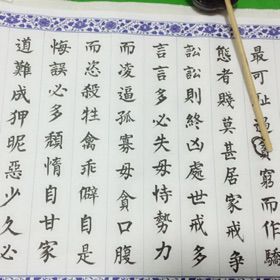 最可耻遇窮而作驕
態者賤莫甚居家戒爭
訟訟則終凶處世戒多
言言多必失毋恃勢力
而凌逼孤寡毋貪口腹
而恣殺牲禽乖僻自是
悔誤必多頹惰自甘家
道難成狎昵惡少久必